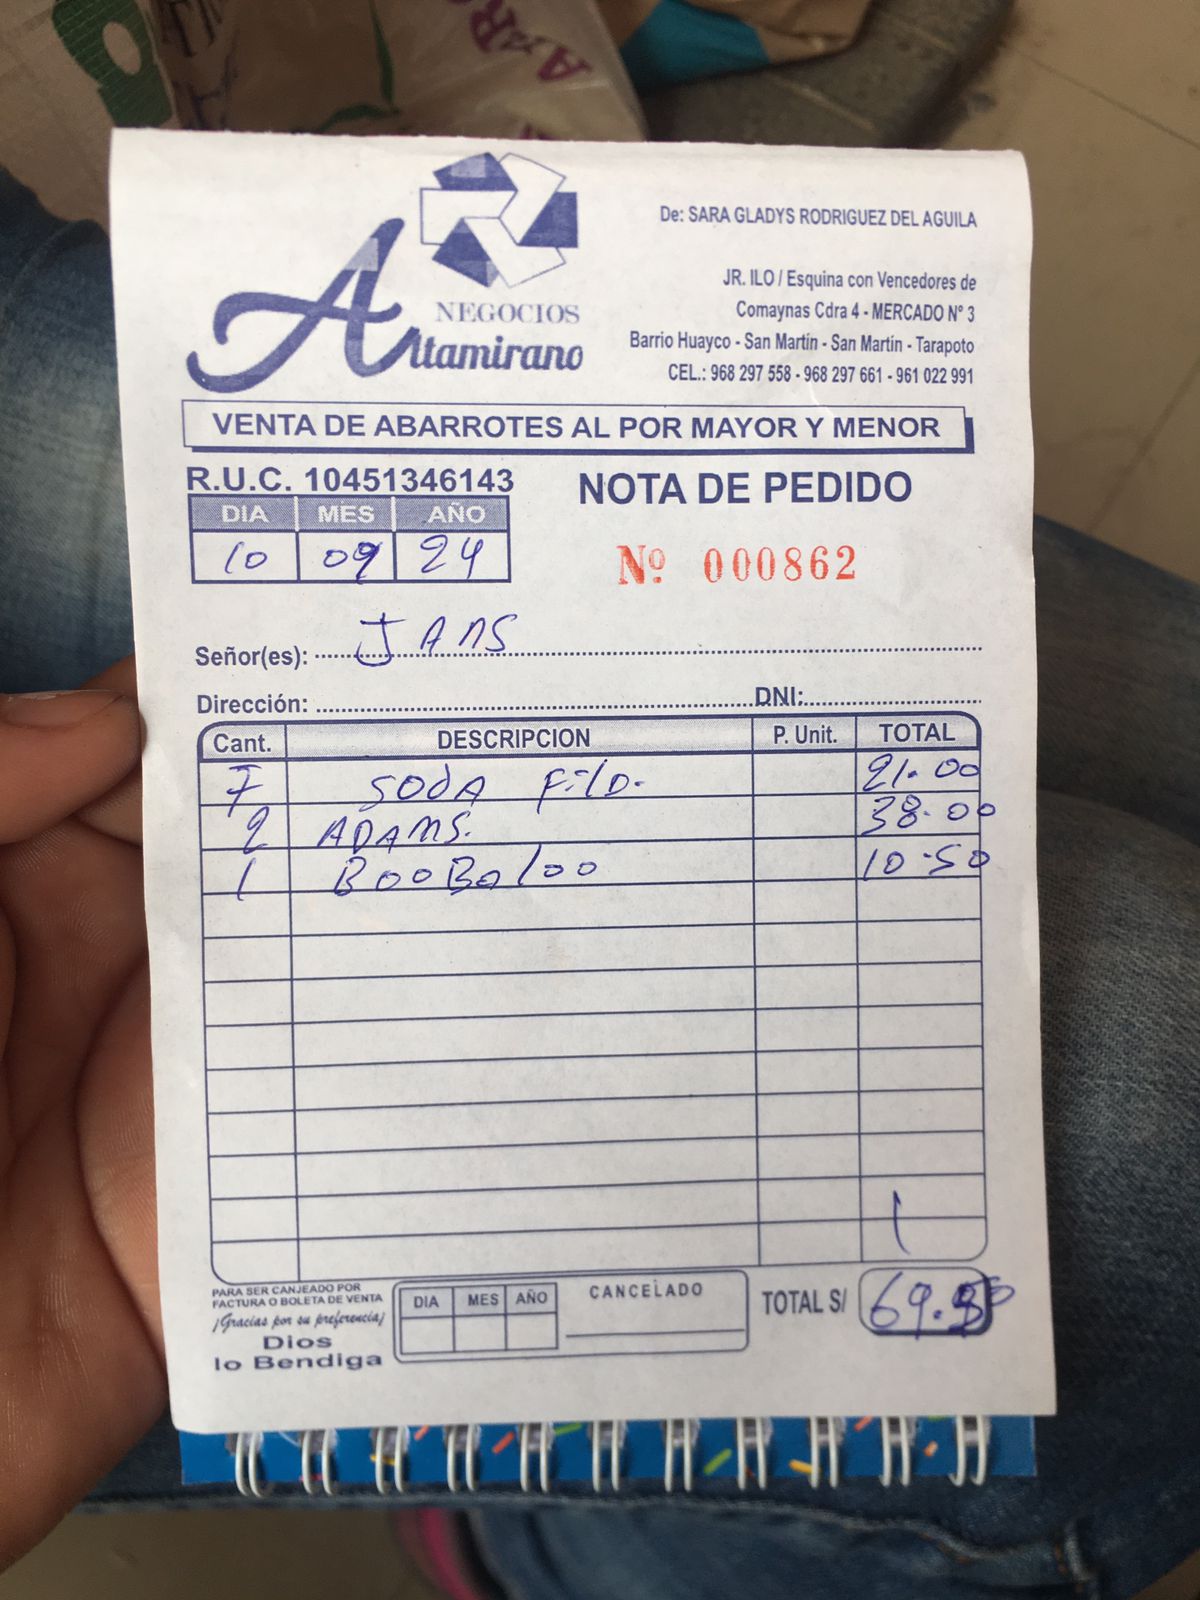 De: SARA GLADYS RODRIGUEZ DEL AGUILA
NEGOCIOS
Altamirano
JR. ILO / Esquina con Vencedores de
Comaynas Cdra 4 - MERCADO N° 3
Barrio Huayco - San Martín - San Martín - Tarapoto
CEL.: 968 297 558 - 968 297 661 - 961 022 991
VENTA DE ABARROTES AL POR MAYOR Y MENOR
R.U.C. 10451346143
NOTA DE PEDIDO
DIA MES AÑO
10 09 24
Nº 000862
Señor(es): JAMS
Dirección: DNI:
Cant. DESCRIPCION P. Unit. TOTAL
7 SODA Fild. 21.00
2 ADAMS. 38.00
1 BOOBaloo 10.50
PARA SER CANJEADO POR
FACTURA O BOLETA DE VENTA
¡Gracias por su preferencia!
Dios
lo Bendiga
DIA MES AÑO
CANCELADO
TOTAL S/ 69.50